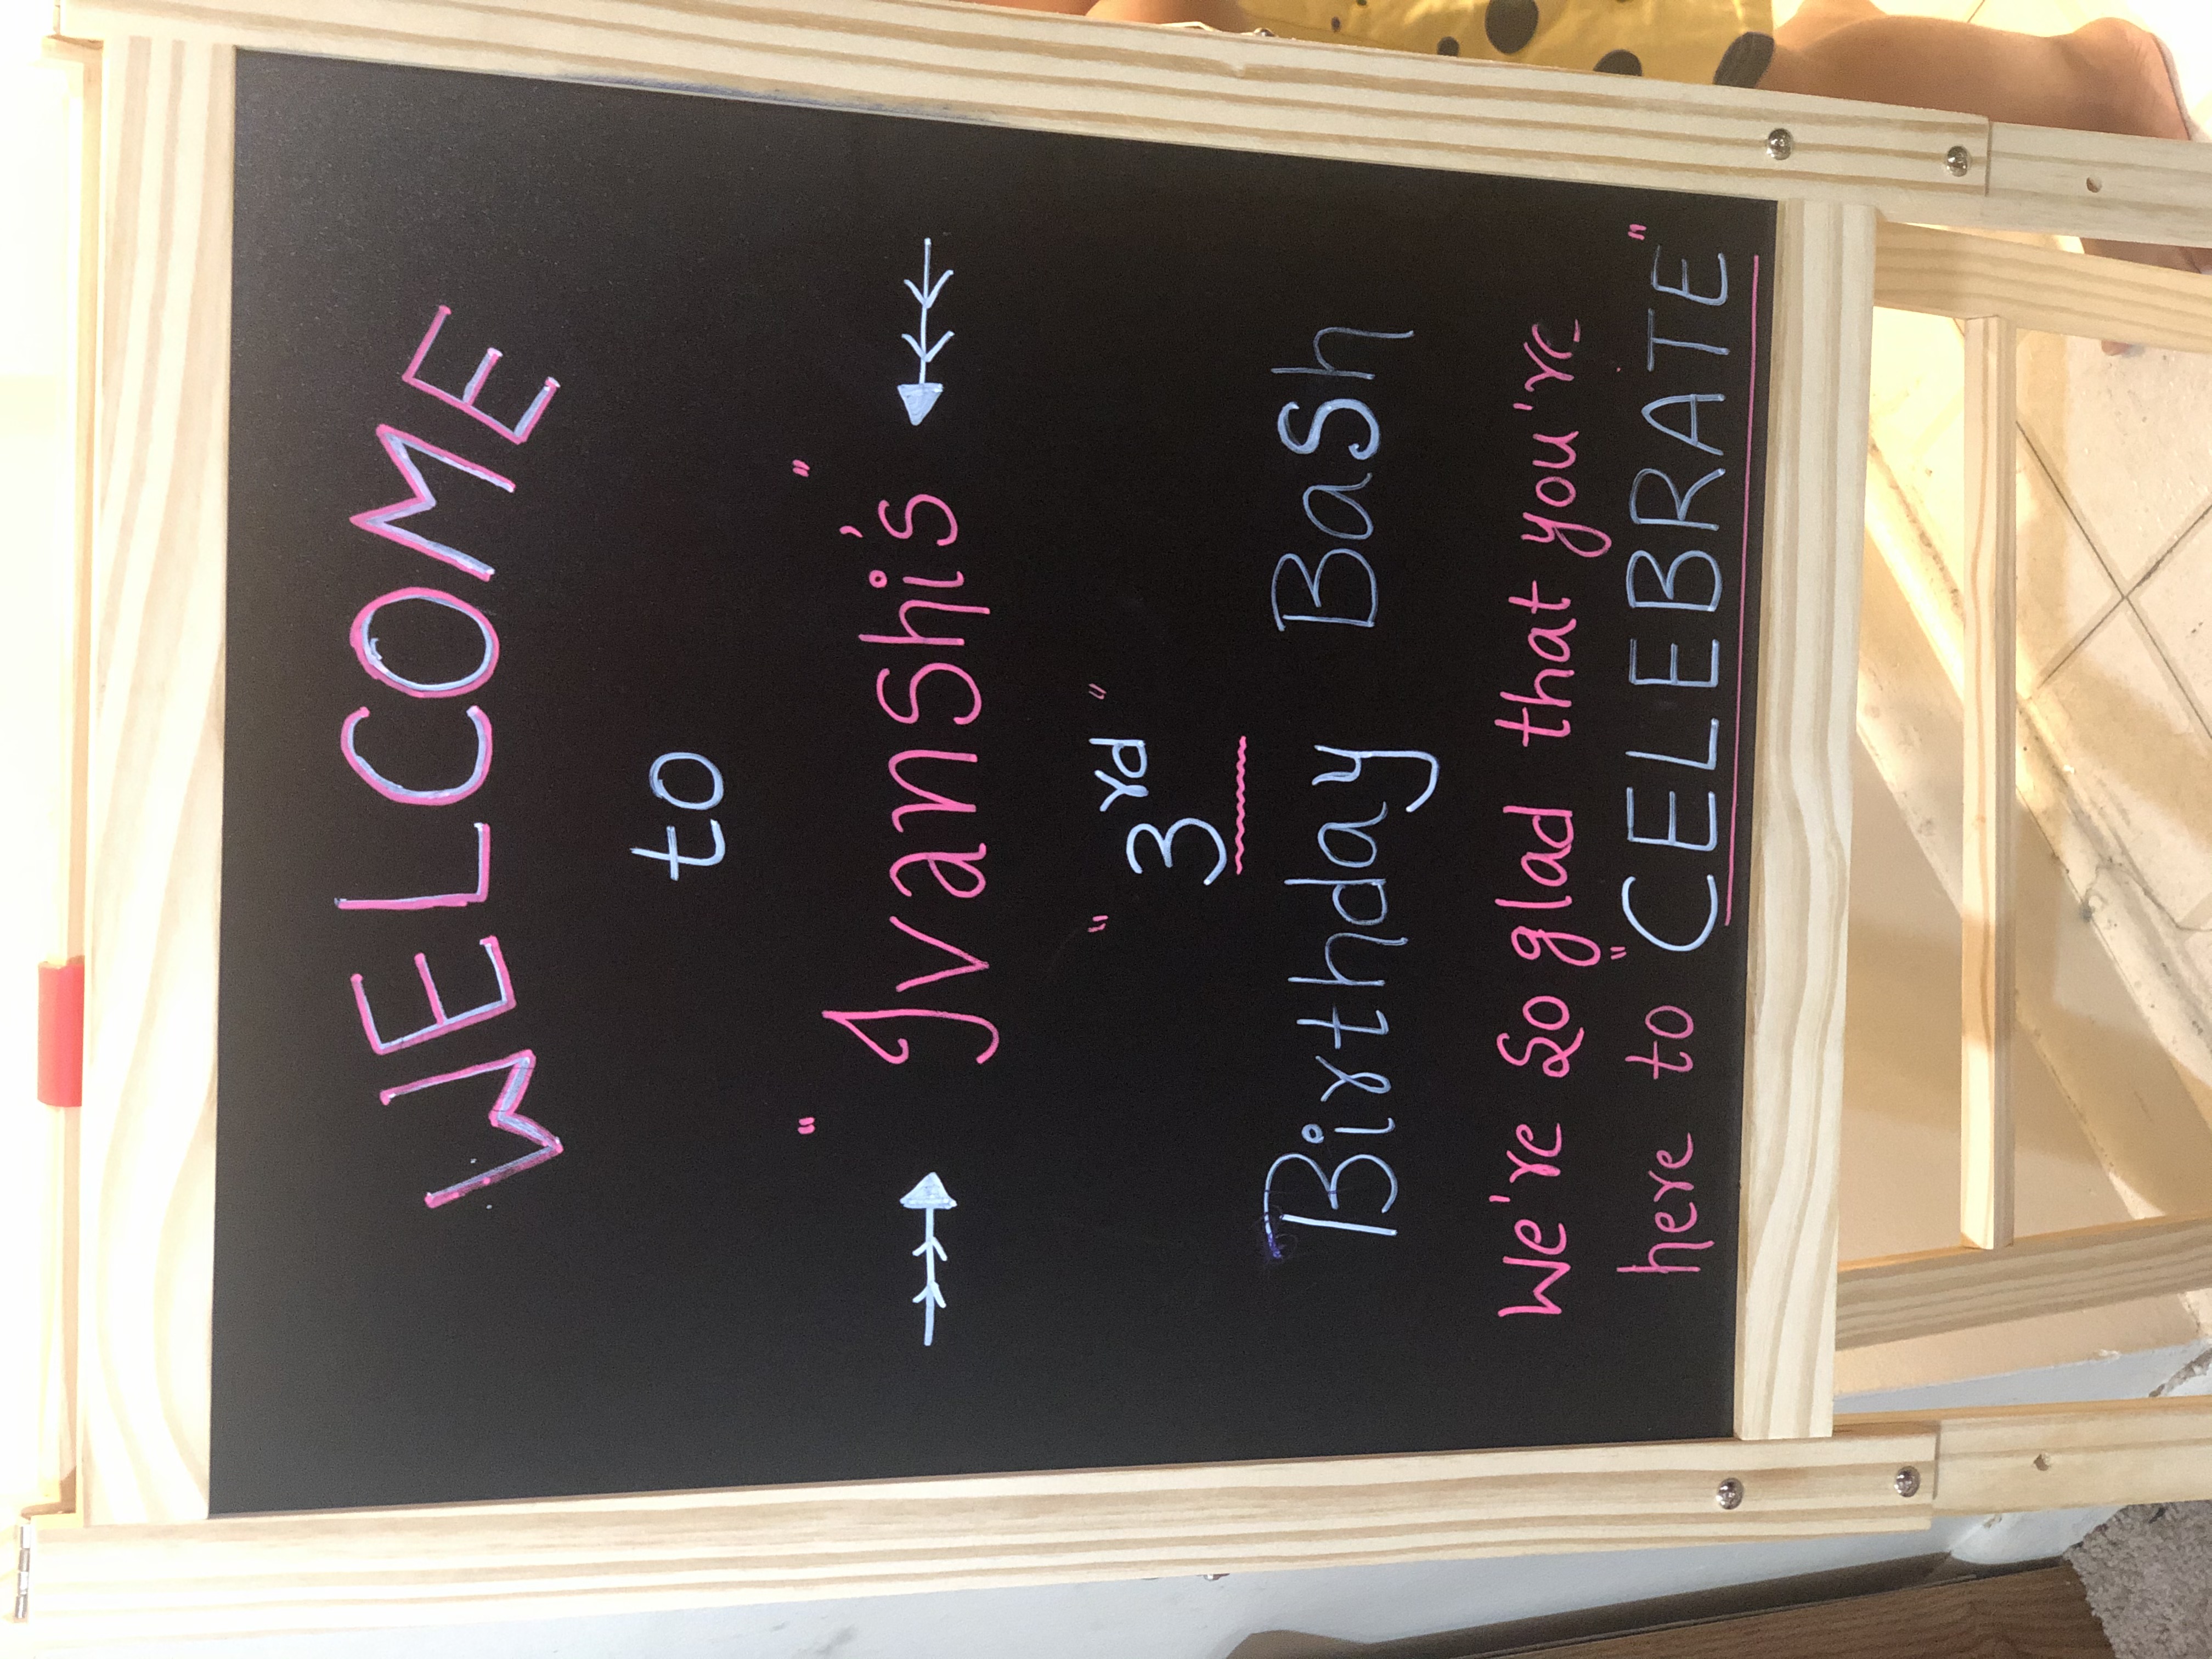 WELCOME
to
"Ivanshi's"
"3rd"
Birthday Bash
We're So glad that you're
here to "CELEBRATE"